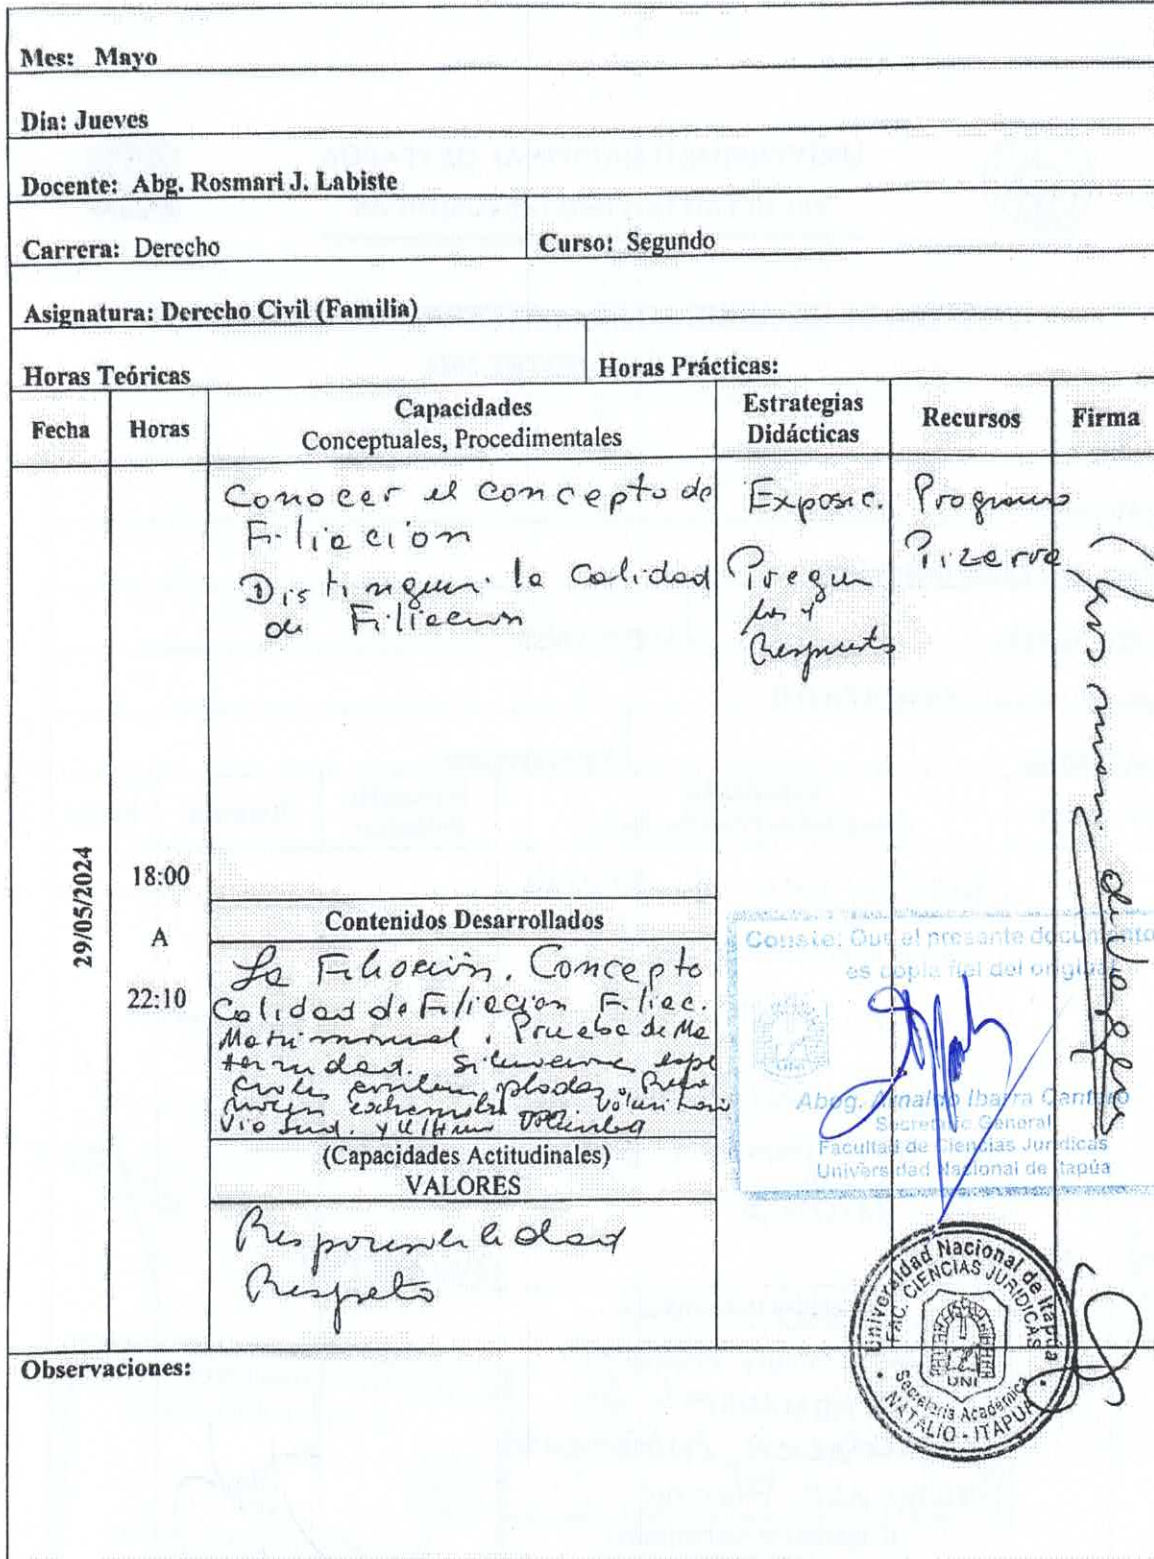 Mes: Mayo
Dia: Jueves
Docente: Abg. Rosmari J. Labiste
Carrera: Derecho Curso: Segundo
Asignatura: Derecho Civil (Familia)
Horas Teóricas Horas Prácticas:
Fecha Horas Capacidades Conceptuales, Procedimentales Estrategias Didácticas Recursos Firma
29/05/2024
18:00
A
22:10
Conocer el concepto de
Filiación
Distinguir la Calidad
de Filiación
Exposic.
Pregun
tas y
Respuesta
Programa
Pizarra
Contenidos Desarrollados
La Filiación. Concepto
Calidad de Filiación Filiac.
Matrimonial. Prueba de Ma
ternidad.
(Capacidades Actitudinales)
VALORES
Responsabilidad
Respeto
Conste: Que el presente documento
es copia fiel del original
UNI
Abog. Arnaldo Ibarra Cantero
Secretario General
Facultad de Ciencias Jurídicas
Universidad Nacional de Itapúa
Universidad Nacional de Itapúa
FAC. CIENCIAS JURIDICAS
UNI
Secretaria Académica
NATALIO - ITAPUA
Observaciones: